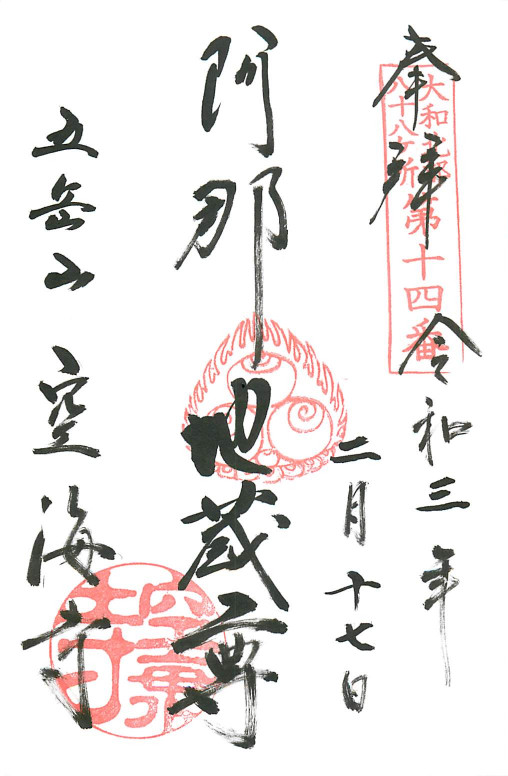 奉拝 令和三年
二月十七日
大和北部
八十八ヶ所第十四番
阿那地蔵尊
五岳山 空海寺
空海寺